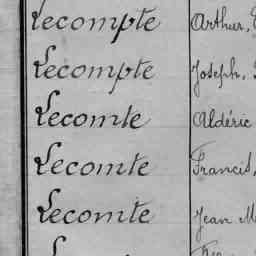 Lecompte Arthur,
Lecompte Joseph,
Lecomte Aldéric
Lecomte Francis,
Lecomte Jean M